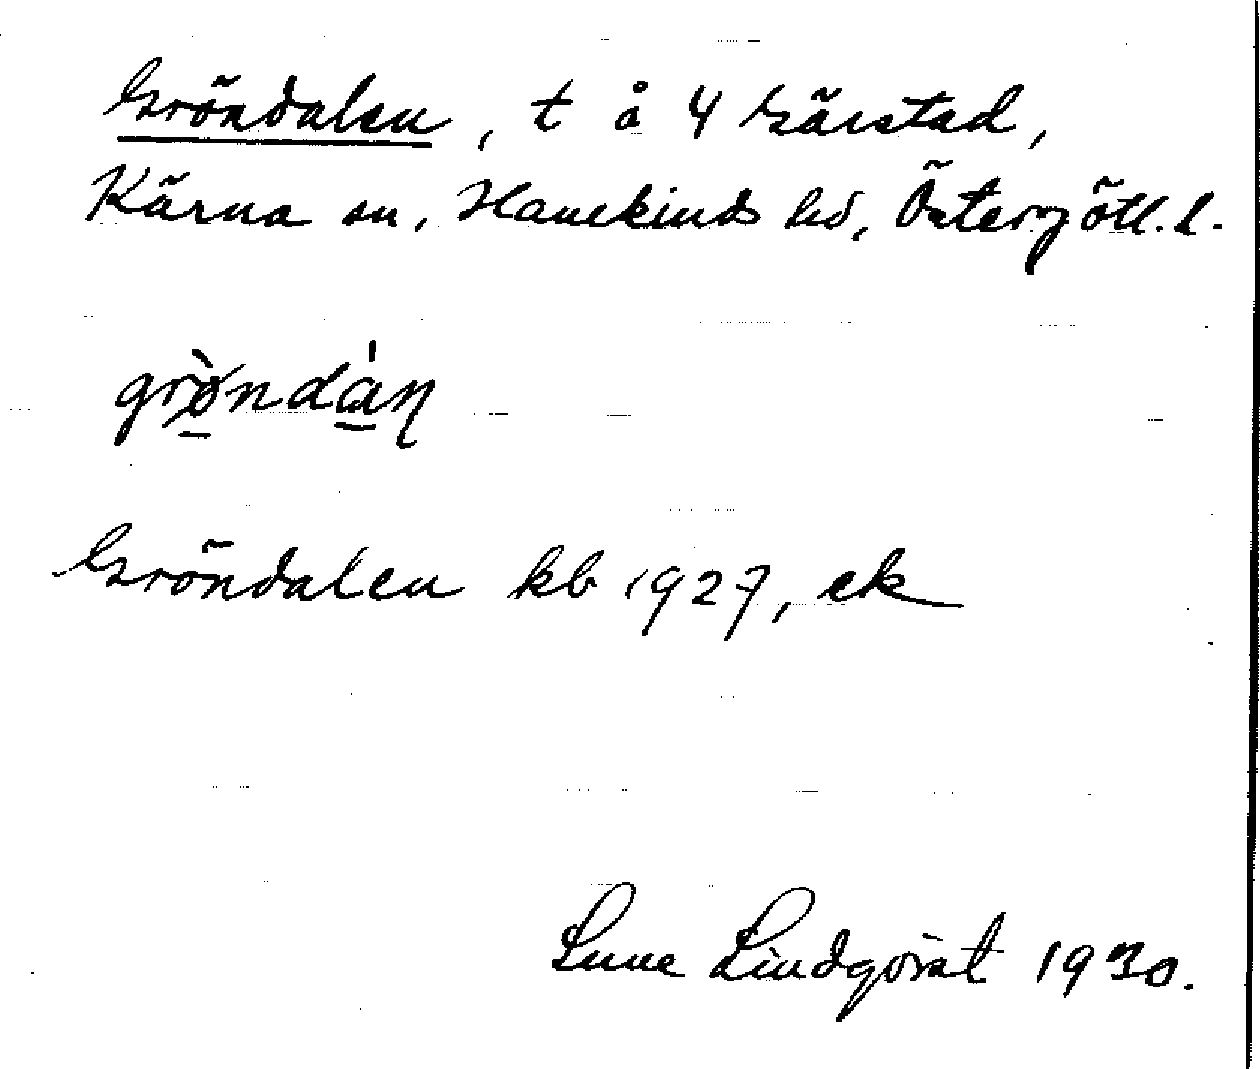 Gröndalen, t å 4 Gärstad,
Kärna sn, Hanekinds hd, Östergötl. l.
grø̀ndáṇ
Gröndalen kb 1927, ek
Sune Lindqvist 1930.